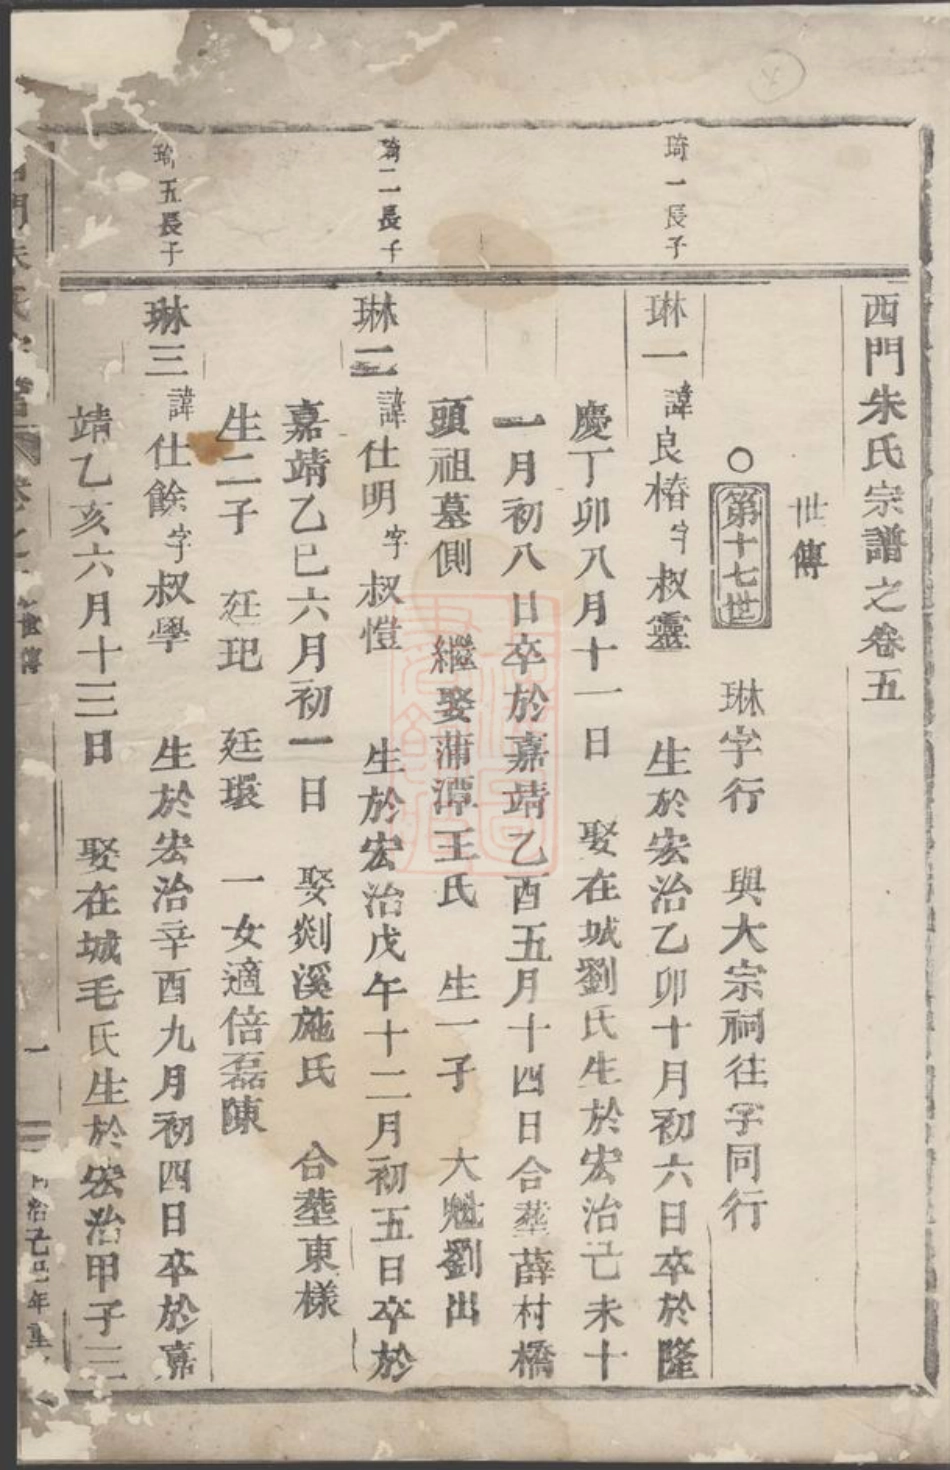 西門朱氏宗譜之卷五
世傳
○第十七世 琳字行 與大宗祠往字同行
琦一長子
琳一 諱良椿字叔靈 生於宏治乙卯十月初六日卒於隆
慶丁卯八月十一日 娶在城劉氏生於宏治己未十
一月初八日卒於嘉靖乙酉五月十四日合塟薛村橋
頭祖墓側 繼娶蒲潭王氏 生一子 大魁劉出
琦二長子
琳二 諱仕明字叔愷 生於宏治戊午十二月初五日卒於
嘉靖乙巳六月初一日 娶剡溪施氏 合塟東樣
生二子 廷玘 廷環 一女適倍磊陳
瑜五長子
琳三 諱仕餘字叔學 生於宏治辛酉九月初四日卒於嘉
靖乙亥六月十三日 娶在城毛氏生於宏治甲子三
門朱氏宗譜 卷之 世傳 一 治己巳年重